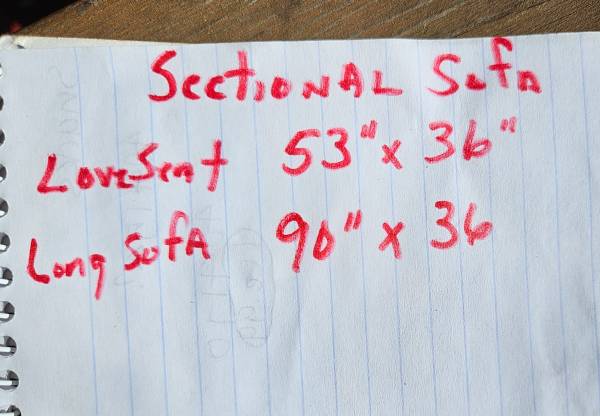 SectioNAL SofA
LoveSeat 53" x 36"
Long SofA 90" x 36